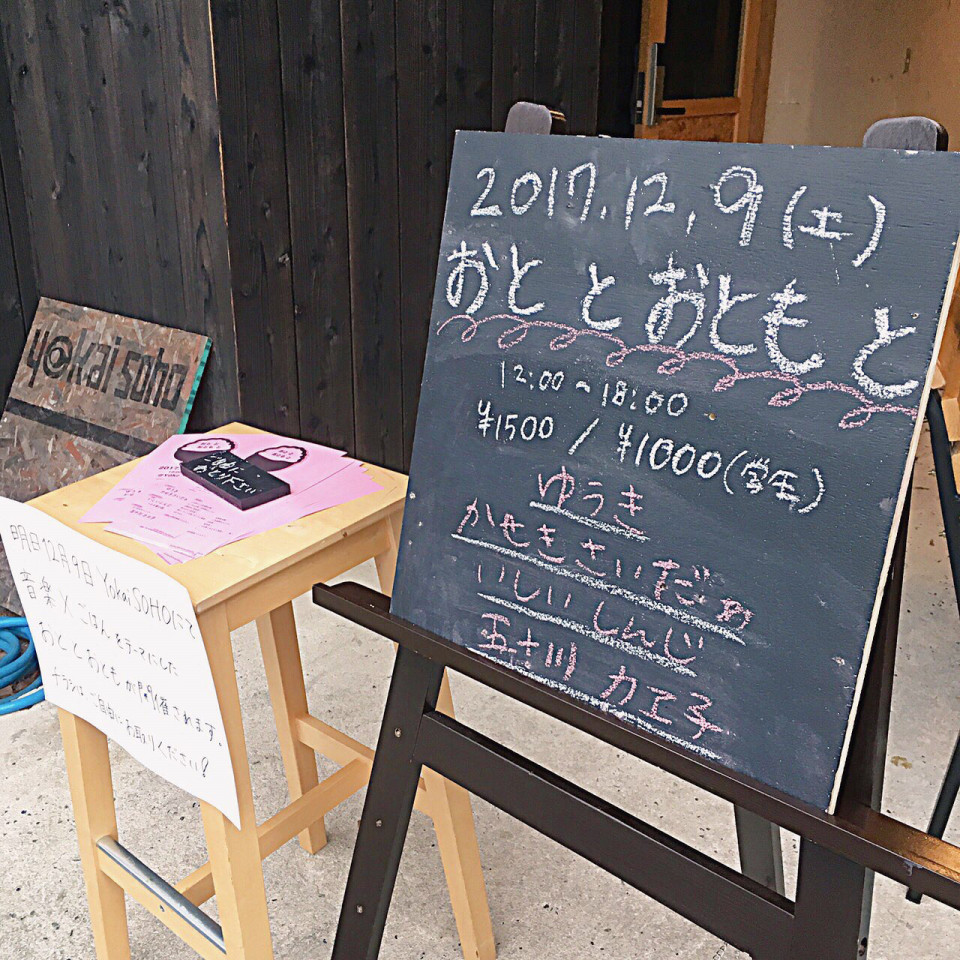 2017.12.9(土)
おと と おともと
12:00~18:00
¥1500 / ¥1000(学生)
ゆうき
かせきさいだぁ
いしいしんじ
五十川 カヱ子
y@kai soho
ご自由に
おとりください
明日12月9日 Yokai SOHOにて
音楽×ごはんをテーマにした
おととおともが開催されます。
チラシはご自由にお取りください!